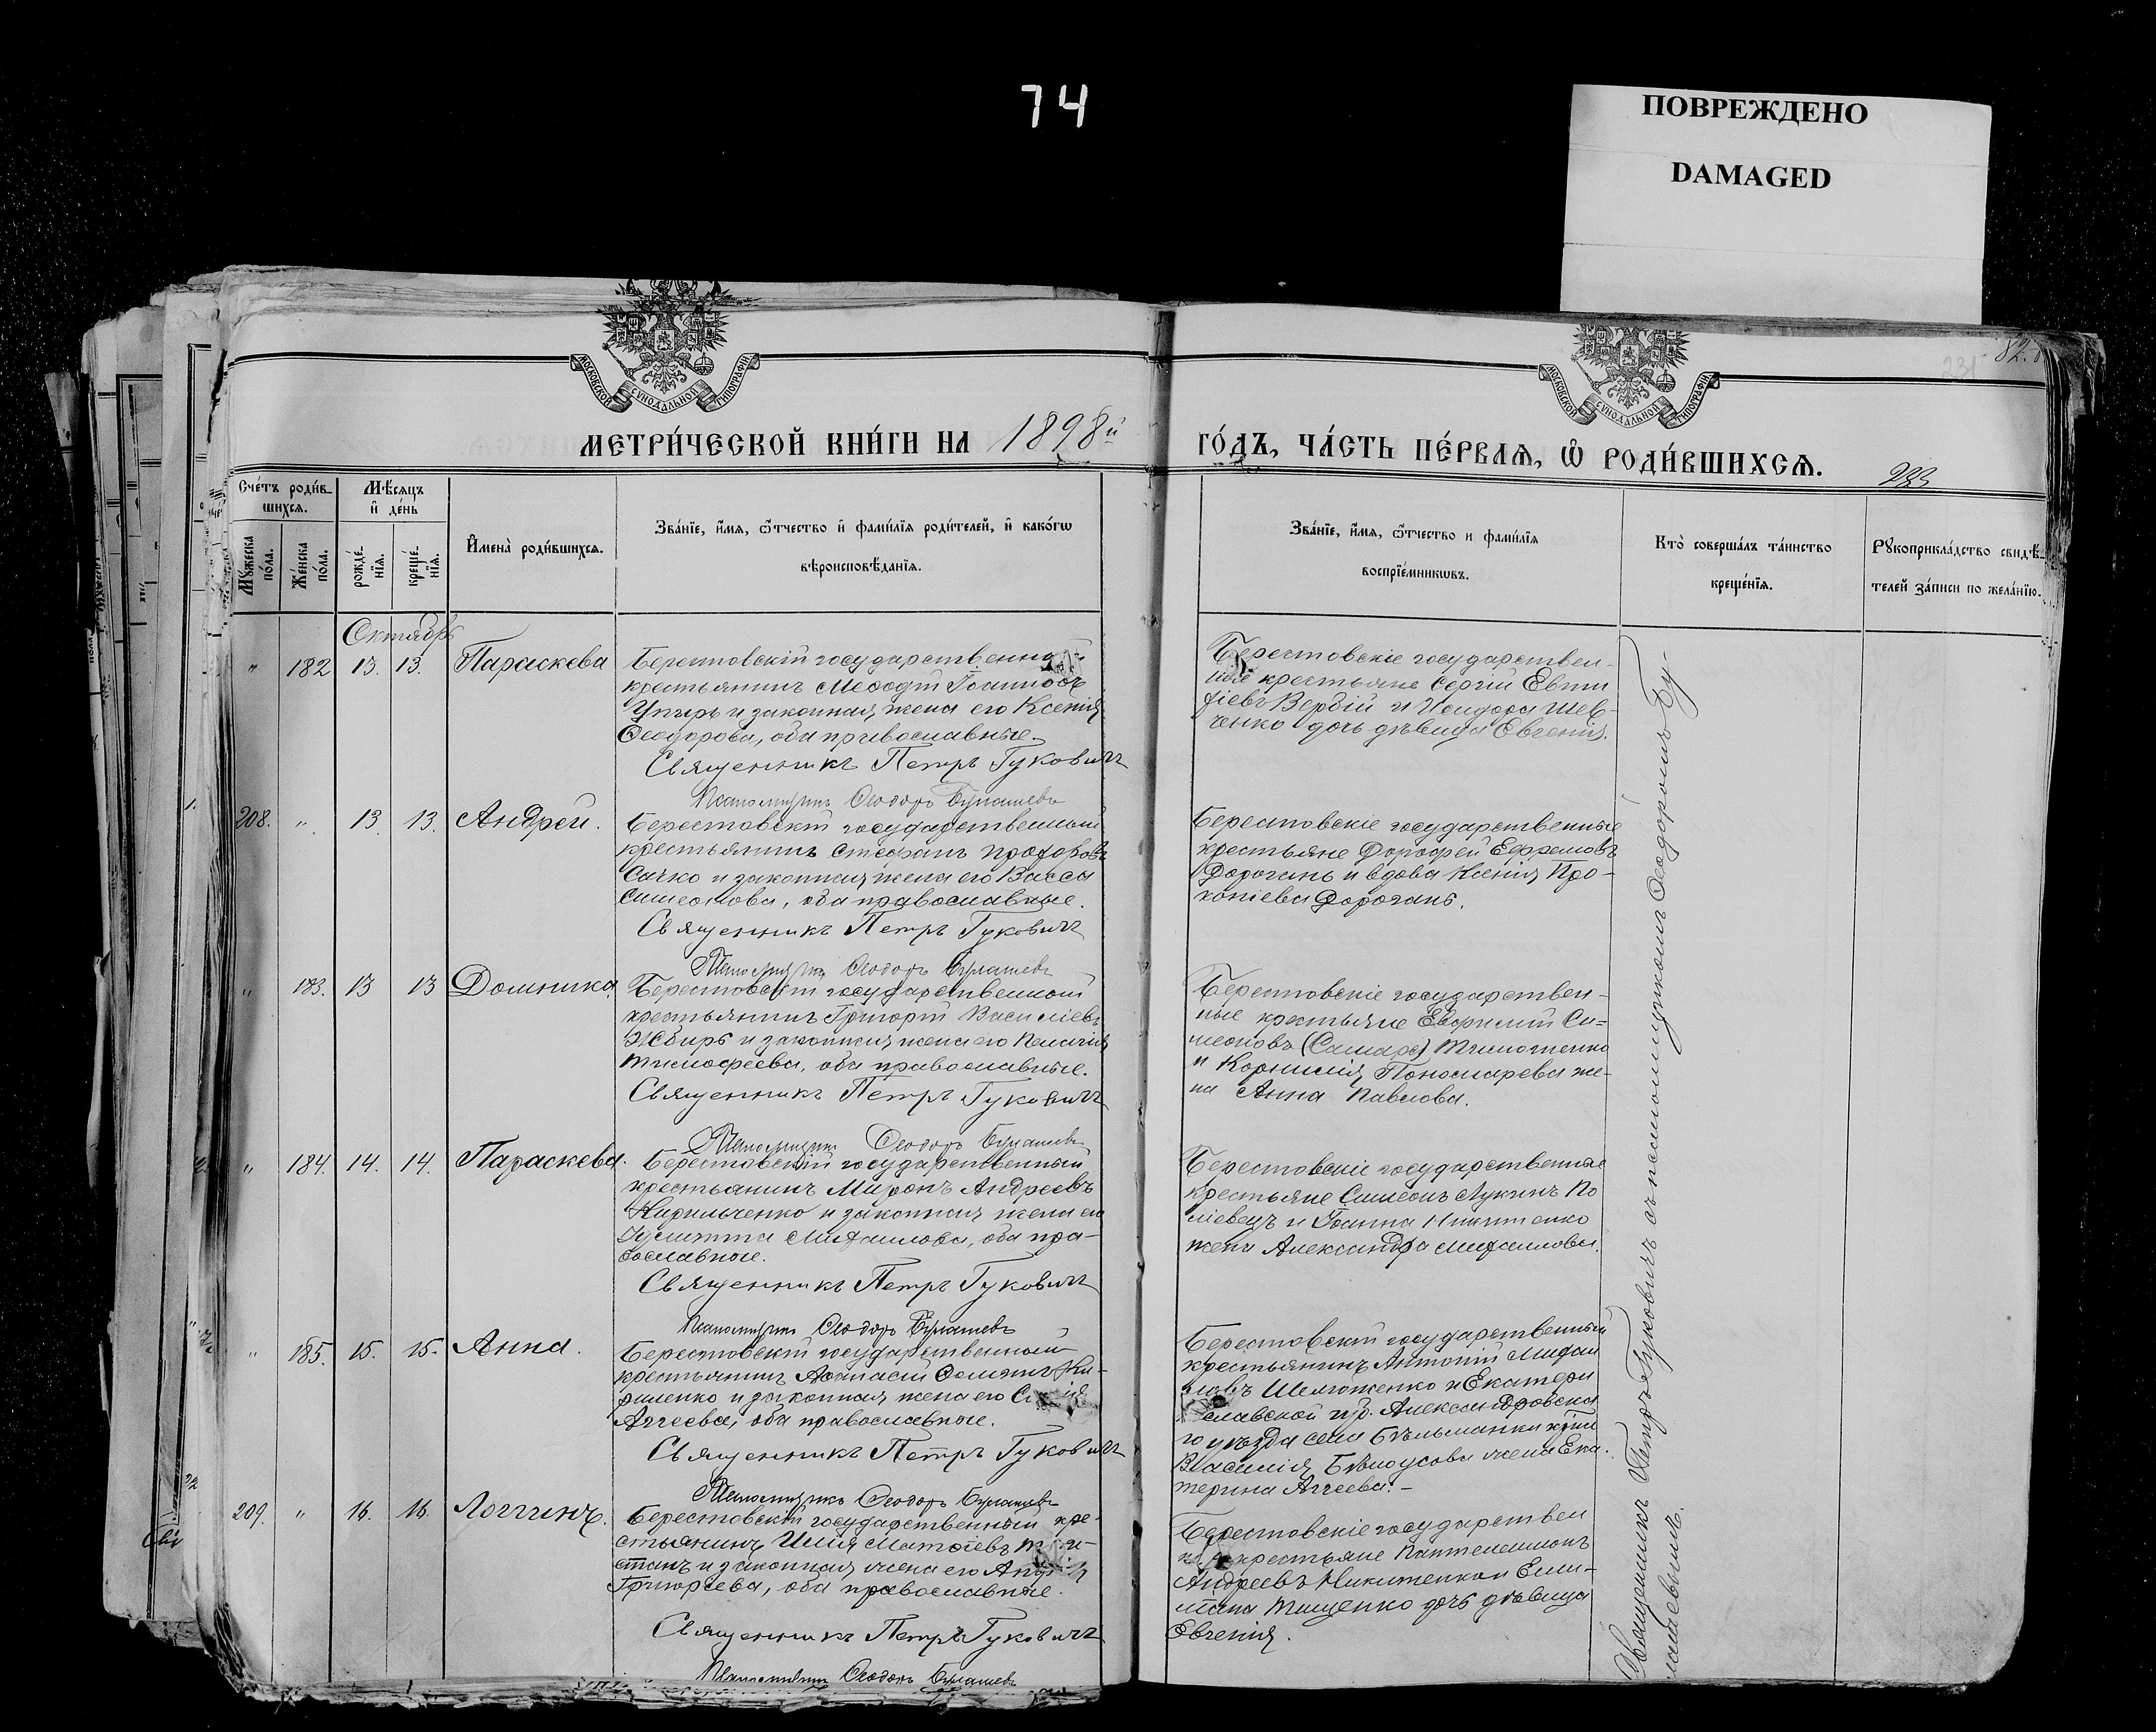 74
ПОВРЕЖДЕНО
DAMAGED
МОСКОВСКОЙ СУНОДАЛЬНОЙ ТИПОГРАФІИ
МОСКОВСКОЙ СУНОДАЛЬНОЙ ТИПОГРАФІИ
82.
231
МЕТРИ́ЧЕСКОЙ КНИ́ГИ НА 1898й
ГО́ДЪ, ЧА́СТЬ ПЕ́РВАѦ, Ѡ҆ РОДИ́ВШИХСѦ.
Сче́тъ роди́в-
шихсѧ.
Мѣ́сѧцъ
и҆ де́нь
Мꙋ́жеска по́ла.
Же́нска по́ла.
рожде́-
нїѧ.
креще́-
нїѧ.
И҆мена̀ роди́вшихсѧ.
Зва́нїе, и҆́мѧ, ѻ҆́тчество и҆ фами́лїѧ роди́телей, и҆ како́гѡ
вѣроисповѣ́данїѧ.
Зва́нїе, и҆́мѧ, ѻ҆́тчество и фами́лїѧ
воспрїе́мникѡвъ.
Кто̀ соверша́лъ та́инство
креще́нїѧ.
Рꙋкоприкла́дство свидѣ́-
телей за́писи по жела́нїю.
Октябрь
" 182 13. 13. Параскева
Берестовскій государственный
крестьянинъ Меѳодій Іоанновъ
Упырь и законная жена его Ксенія
Ѳеодорова, оба православные.
Священникъ Петръ Гуковичъ
Псаломщикъ Ѳеодоръ Булашевъ
Берестовскіе государствен-
ные крестьяне Сергій Евти
фіевъ Вербій и Исидора Шев-
ченко дочь дѣвица Евгенія.
208. " 13 13. Андрей.
Берестовскій государственный
крестьянинъ Стефанъ Прохоровъ
Сачко и законная жена его Васса
Симеонова, оба православные.
Священникъ Петръ Гуковичъ
Псаломщикъ Ѳеодоръ Булашевъ
Берестовскіе государственные
крестьяне Дорофей Ефремовъ
Дорогань и вдова Ксенія Про-
копіева Дорогань.
" 183. 13 13 Домника.
Берестовскій государственный
крестьянинъ Григорій Василіевъ
Жбырь и законная жена его Пелагія
Тимофеева, оба православные.
Священникъ Петръ Гуковичъ
Псаломщикъ Ѳеодоръ Булашевъ
Берестовскіе государствен-
ные крестьяне Евфимій Си-
меоновъ Тимошенко
и Корнилія Пономарева же-
на Анна Павлова.
" 184. 14. 14. Параскева.
Берестовскій государственный
крестьянинъ Миронъ Андреевъ
Кирильченко и законная жена его
Іулитта Михаилова, оба пра-
вославные.
Священникъ Петръ Гуковичъ
Псаломщикъ Ѳеодоръ Булашевъ
Берестовскіе государственные
крестьяне Симеонъ Лукинъ По
ліевецъ и Іоанна Никитенко
жена Александра Михаилова.
" 185. 15. 15. Анна.
Берестовскій государственный
крестьянинъ Аѳанасій Ки-
риленко и законная жена его
Аггеева, оба православные.
Священникъ Петръ Гуковичъ
Псаломщикъ Ѳеодоръ Булашевъ
Берестовскій государственный
крестьянинъ Антоній Михаи
ловъ Шелюженко и Екатери
славской гу. Александровска
го уѣзда села Бѣльманки
Василія Бѣлоусова жена Ека-
терина Аггеева.-
209. " 16. 16. Логгинъ.
Берестовскій государственный кре-
стьянинъ Илія Матѳіевъ
и законная жена его
Григоріева, оба православные.
Священникъ Петръ Гуковичъ
Псаломщикъ Ѳеодоръ Булашевъ
Берестовскіе государствен
крестьяне Пантелеимонъ
Андреевъ Никитенко и Еми-
ліана Тищенко дочь дѣвица
Евгенія.
Священникъ Петръ Гуковичъ съ псаломщикомъ Ѳеодоромъ Бу-
лашевымъ.